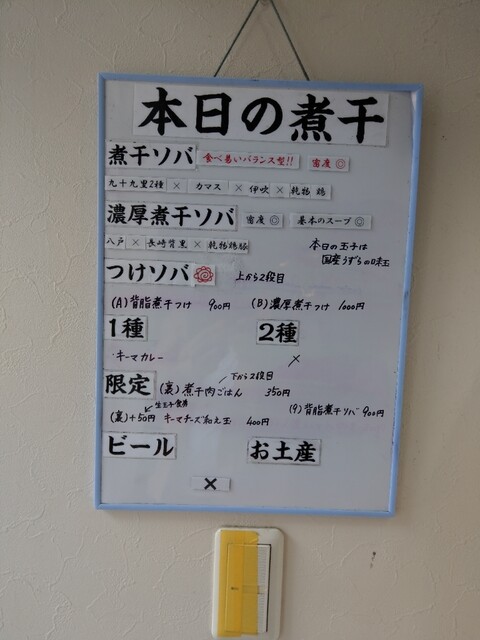 本日の煮干
煮干ソバ 食べ易いバランス型!! 密度 ◎
九十九里2種 × カマス × 伊吹 × 乾物 鶏
濃厚煮干ソバ 密度 ◎ 基本のスープ ◎
八戸 × 長崎背黒 × 乾物鶏豚
本日の玉子は
国産うずらの味玉
つけソバ 上から2段目
(A) 背脂煮干つけ 900円 (B) 濃厚煮干つけ 1000円
1種 2種
・キーマカレー ×
下から2段目
限定 (裏) 煮干肉ごはん 350円
生玉子
(9) 背脂煮干ソバ 900円
(裏)+50円 キーマチーズ和え玉 400円
ビール お土産
×